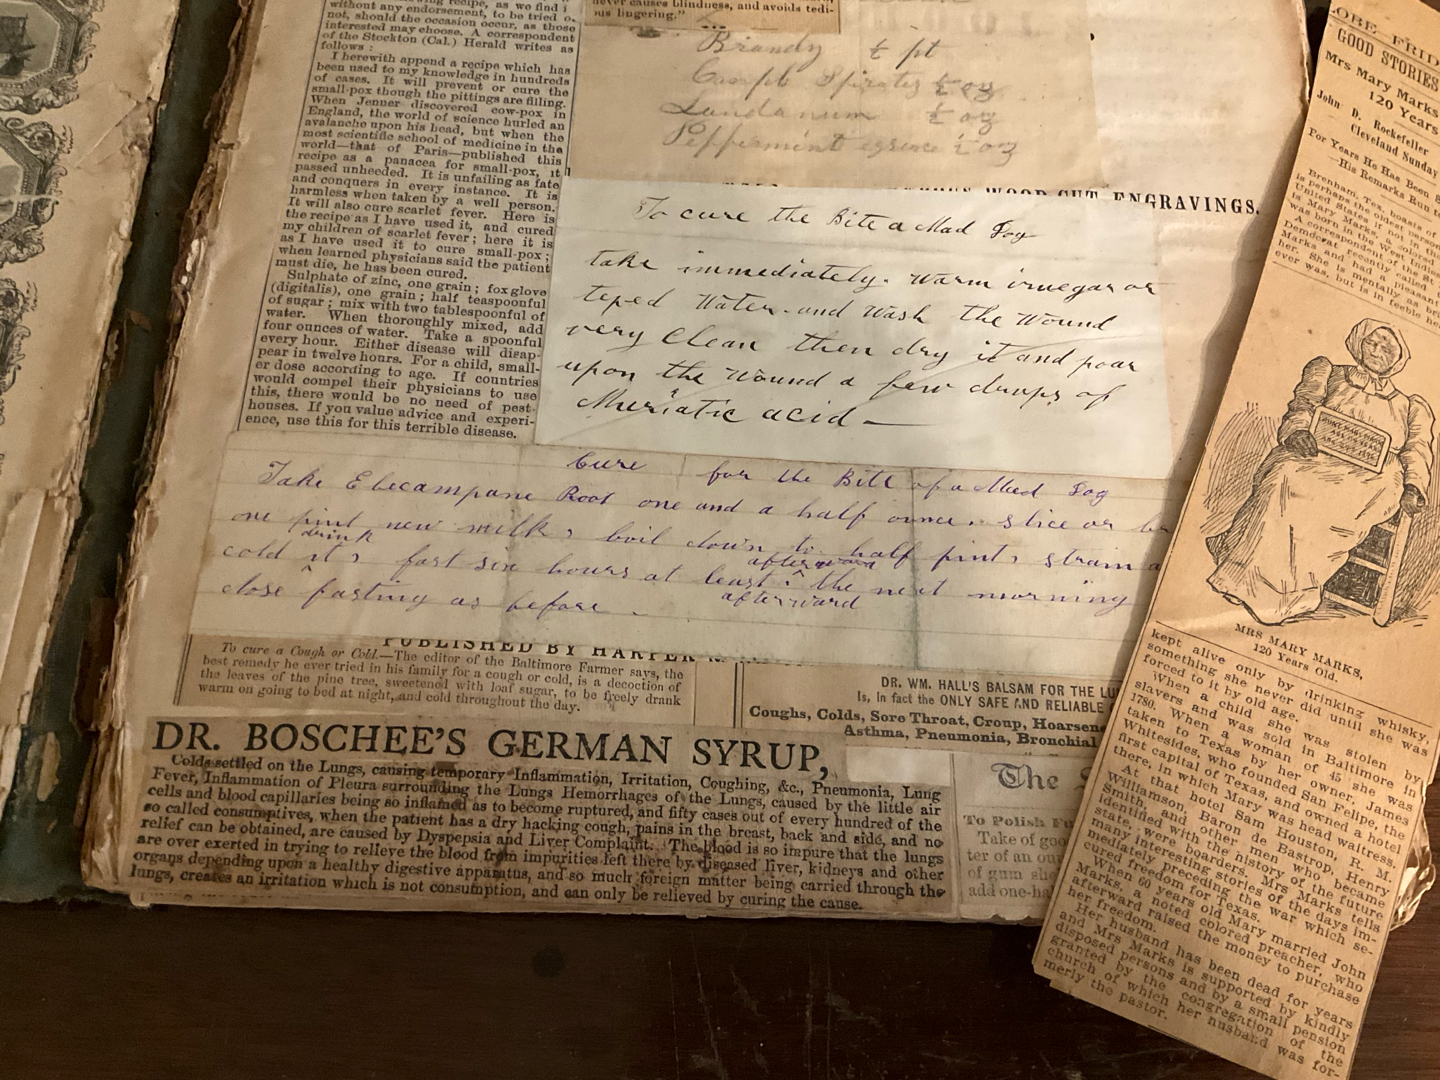 without any endorsement, to be tried
not, should the occasion occur, as those
interested may choose. A correspondent
of the Stockton (Cal.) Herald writes as
follows:
I herewith append a recipe which has
been used to my knowledge in hundreds
of cases. It will prevent or cure the
small-pox though the pittings are filling.
When Jenner discovered cow-pox in
England, the world of science hurled an
avalanche upon his head, but when the
most scientific school of medicine in the
world—that of Paris—published this
recipe as a panacea for small-pox, it
passed unheeded. It is unfailing as fate
and conquers in every instance. It is
harmless when taken by a well person.
It will also cure scarlet fever. Here is
the recipe as I have used it, and cured
my children of scarlet fever; here it is
as I have used it to cure small-pox;
when learned physicians said the patient
must die, he has been cured.
Sulphate of zinc, one grain; foxglove
(digitalis), one grain; half teaspoonful
of sugar; mix with two tablespoonful of
water. When thoroughly mixed, add
four ounces of water. Take a spoonful
every hour. Either disease will disap-
pear in twelve hours. For a child, small-
er dose according to age. If countries
would compel their physicians to use
this, there would be no need of pest-
houses. If you value advice and experi-
ence, use this for this terrible disease.
never causes blindness, and avoids tedi-
ous lingering."
Brandy ½ pt
Camph Spirates ½ oz
Laudanum ½ oz
Peppermint essence ½ oz
WOOD-CUT ENGRAVINGS.
To cure the Bite a Mad Dog
take immediately. warm vinegar or
teped Water and Wash the Wound
very Clean then dry it and poar
upon the Wound a few drops of
Muriatic acid —
Cure for the Bite of a Mad Dog
Take Elecampane Root one and a half ounce, slice or
one pint new milk, boil down to half pint, strain
cold drink it, fast six hours at least afterward the next morning
close fasting as before. afterward
PUBLISHED BY HARPER
To cure a Cough or Cold.—The editor of the Baltimore Farmer says, the
best remedy he ever tried in his family for a cough or cold, is a decoction of
the leaves of the pine tree, sweetened with loaf sugar, to be freely drank
warm on going to bed at night, and cold throughout the day.
DR. WM. HALL'S BALSAM FOR THE
Is, in fact the ONLY SAFE AND RELIABLE
Coughs, Colds, Sore Throat, Croup,
Asthma, Pneumonia, Bronchial
DR. BOSCHEE'S GERMAN SYRUP,
Colds settled on the Lungs, causing temporary Inflammation, Irritation, Coughing, &c., Pneumonia, Lung
Fever, Inflammation of Pleura surrounding the Lungs Hemorrhages of the Lungs, caused by the little air
cells and blood capillaries being so inflamed as to become ruptured, and fifty cases out of every hundred of the
so called consumptives, when the patient has a dry hacking cough, pains in the breast, back and side, and no
relief can be obtained, are caused by Dyspepsia and Liver Complaint. The blood is so impure that the lungs
are over exerted in trying to relieve the blood from impurities left there by diseased liver, kidneys and other
organs depending upon a healthy digestive apparatus, and so much foreign matter being carried through the
lungs, creates an irritation which is not consumption, and can only be relieved by curing the cause.
The
To Polish
Take of
ter of an
of gum
add
GOOD STORIES
Mrs Mary Marks
120 Years
John D. Rockefeller
Cleveland Sunday
For Years He Has Been
—His Remarks Run
Brenham, Tex, boasts of
is perhaps the oldest
United States if not
is Mary Marks, a
was born in the West
A correspondent of the St
Democrat recently called
Marks and had a pleasant
her. She is mentally as
ever was, but is in feeble
MRS MARY MARKS,
120 Years Old.
kept alive only by drinking whisky,
something she never did until she was
forced to it by old age.
When a child she was stolen by
slavers and was sold in Baltimore in
1780. When a woman of 45 she was
taken to Texas by her owner, James
Whitesides, who founded San Felipe, the
first capital of Texas, and owned a hotel
there, in which Mary was head waitress.
At that hotel Sam Houston, R. M.
Williamson, Baron de Bastrop, Henry
Smith, and other men who became
identified with the history of the future
state, were boarders. Mrs Marks tells
many interesting stories of the days im-
mediately preceding the war which se-
cured freedom for Texas.
When 60 years old Mary married John
Marks, a noted colored preacher, who
afterward raised the money to purchase
her freedom.
Her husband has been dead for years
and Mrs Marks is supported by kindly
disposed persons and by a small pension
granted by the congregation of the
church of which her husband was for-
merly the pastor.